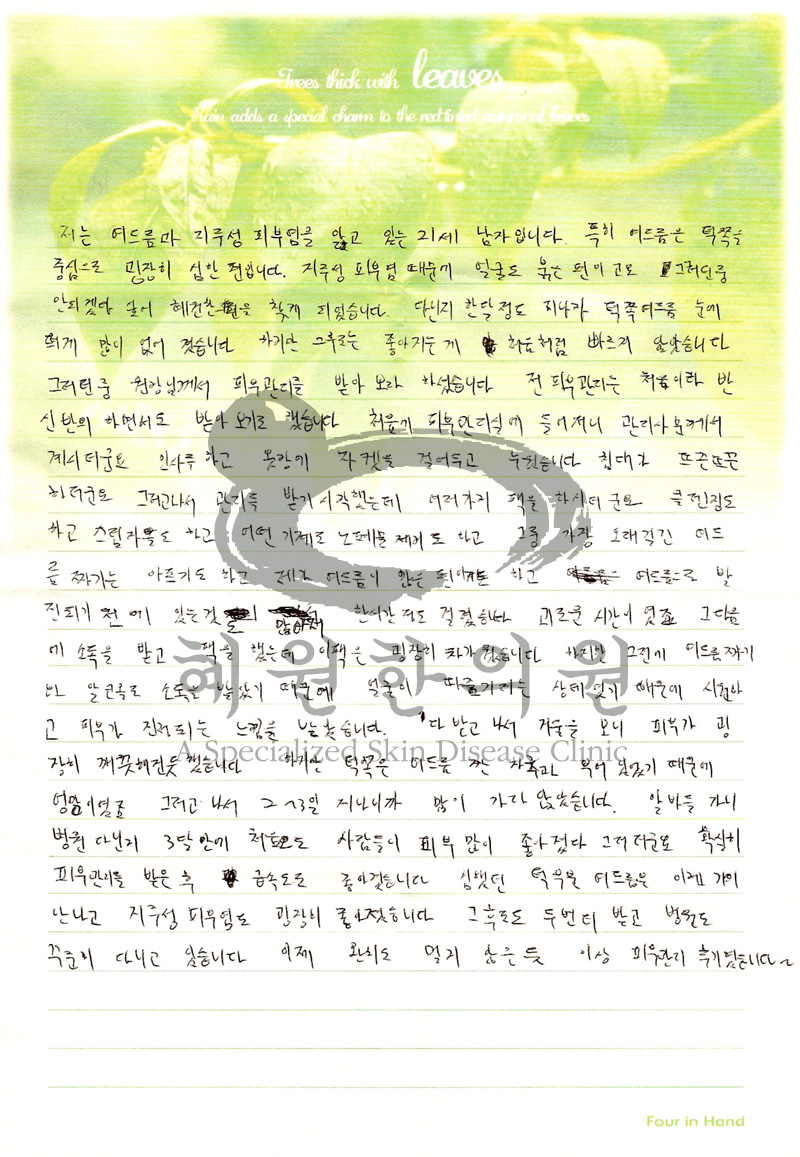 Trees thick with leaves
Rain adds a special charm to the red-tinted autumnal leaves
저는 여드름과 지루성 피부염을 앓고 있는 21세 남자입니다. 특히 여드름은 턱쪽을
중심으로 굉장히 심한 편입니다. 지루성 피부염 때문에 얼굴도 붉은 편이고요 그러던중
안되겠다 싶어 혜원한의원을 찾게 되었습니다. 다닌지 한달 정도 지나자 턱쪽여드름 눈에
띄게 많이 없어 졌습니다 하지만 그후로는 좋아지는게 처음처럼 빠르지 않았습니다
그러던중 원장님께서 피부관리를 받아 보라 하셨습니다 전 피부관리는 처음이라 반
신반의 하면서도 받아 보기로 했습니다 처음에 피부관리실에 들어가니 관리사분께서
계시더군요 인사를 하고 옷장에 자켓을 걸어두고 누웠습니다 침대가 뜨끈뜨끈
하더군요 그러고나서 관리를 받기 시작했는데 여러가지 팩을 하시더군요 클렌징도
하고 스팀타올도 하고 어떤 기계로 노폐물 제거도 하고 그중 가장 오래걸린 여드
름 짜기는 아프기도 하고 제가 여드름이 많은 편이기도 하고 여드름으로 발
진되기 전에 있는것 많아서 한시간 정도 걸렸습니다 괴로운 시간이였죠 그다음
에 소독을 받고 팩을 했는데 이팩은 굉장히 차가웠습니다 하지만 그전에 여드름짜기
와 알코올로 소독을 받았기 때문에 얼굴이 따끔거리는 상태였기 때문에 시원하
고 피부가 진정되는 느낌을 받았습니다. 다받고 나서 거울을 보니 피부가 굉
장히 깨끗해진듯 했습니다 하지만 턱쪽은 여드름 짠 자국과 부어 있었기 때문에
엉망이였죠 그러고 나서 2~3일 지나니까 많이 가라 앉았습니다. 알바를 가니
병원 다닌지 3달만에 처음으로 사람들이 피부 많이 좋아졌다 그러더군요 확실히
피부관리를 받은 후 급속도로 좋아졌습니다 심했던 턱부분 여드름은 이제 거의
안나고 지루성 피부염도 굉장히 좋아졌습니다 그후로도 두번 더 받고 병원도
꾸준히 다니고 있습니다 이제 완치도 멀지 않은듯 이상 피부관리 후기였습니다~
혜원한의원
A Specialized Skin Disease Clinic
Four in Hand